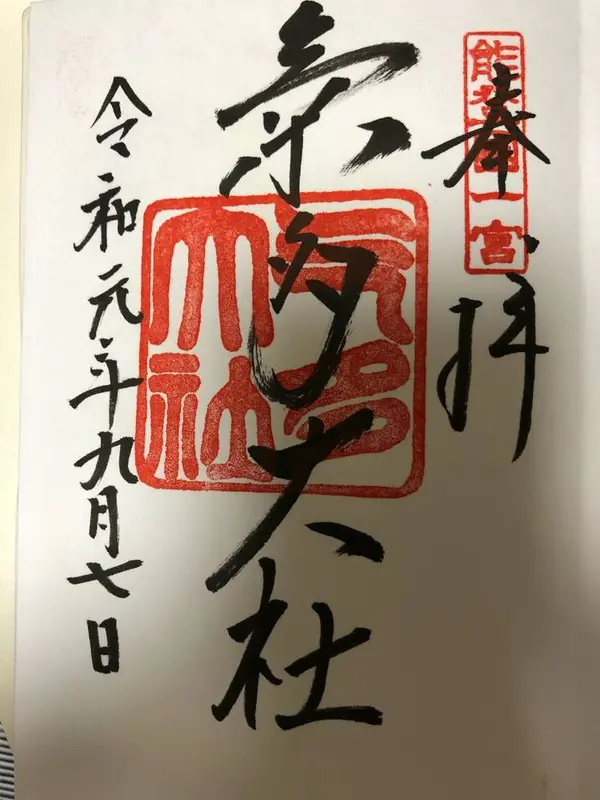 奉拝
能登国一宮
氣多大社
気多大社
令和元年九月七日